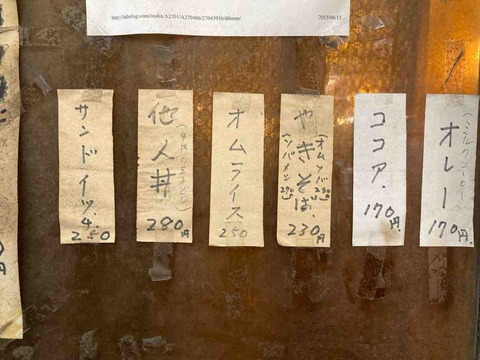 http://tabelog.com/osaka/A2701/A270406/27043936/dtlmap/
2015/06/15
オレー
(ミルクコーヒー)
170円.
ココア.
170円.
やきそば.
(オムソバ250)
(ソバメシ290)
230円
オムライス
250
他人丼
280円
サンドイッチ.
250